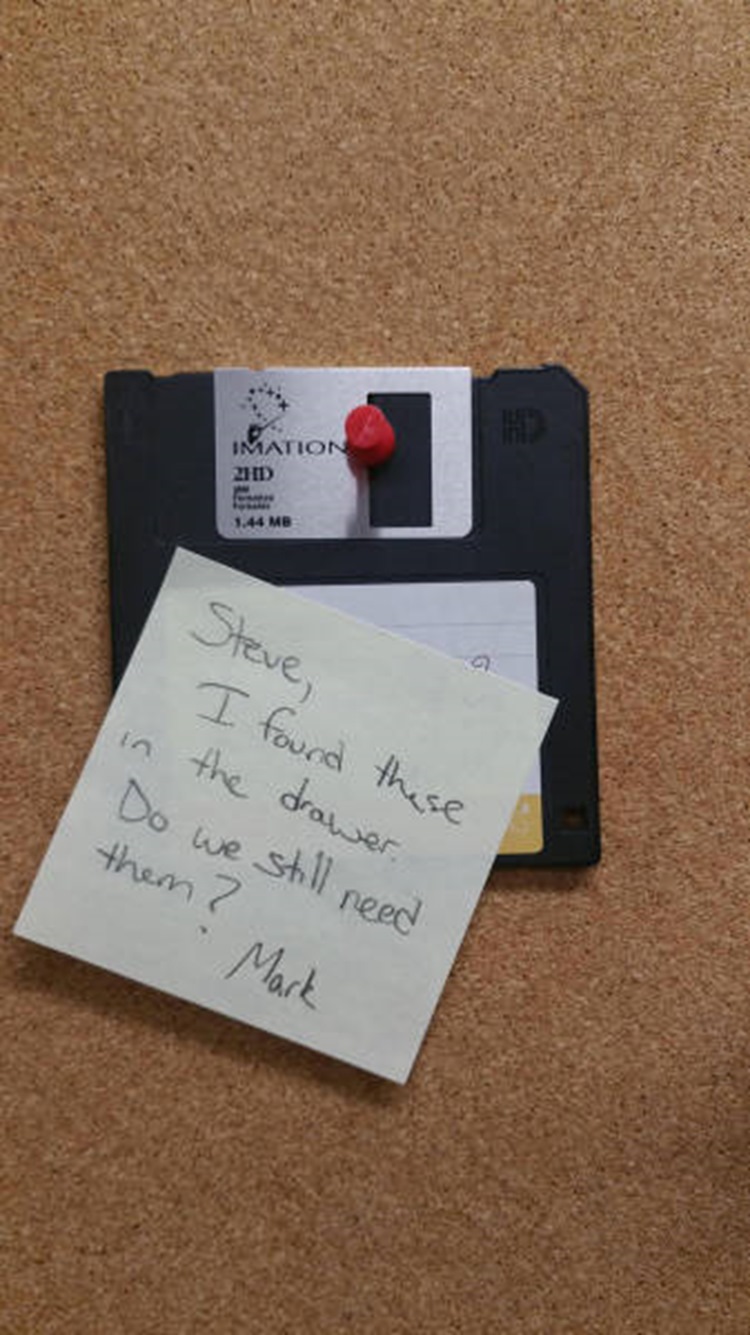 IMATION
2HD
IBM
Formatted
Formatée
1.44 MB
HD
Steve,
I found these
in the drawer.
Do we still need
them?
Mark